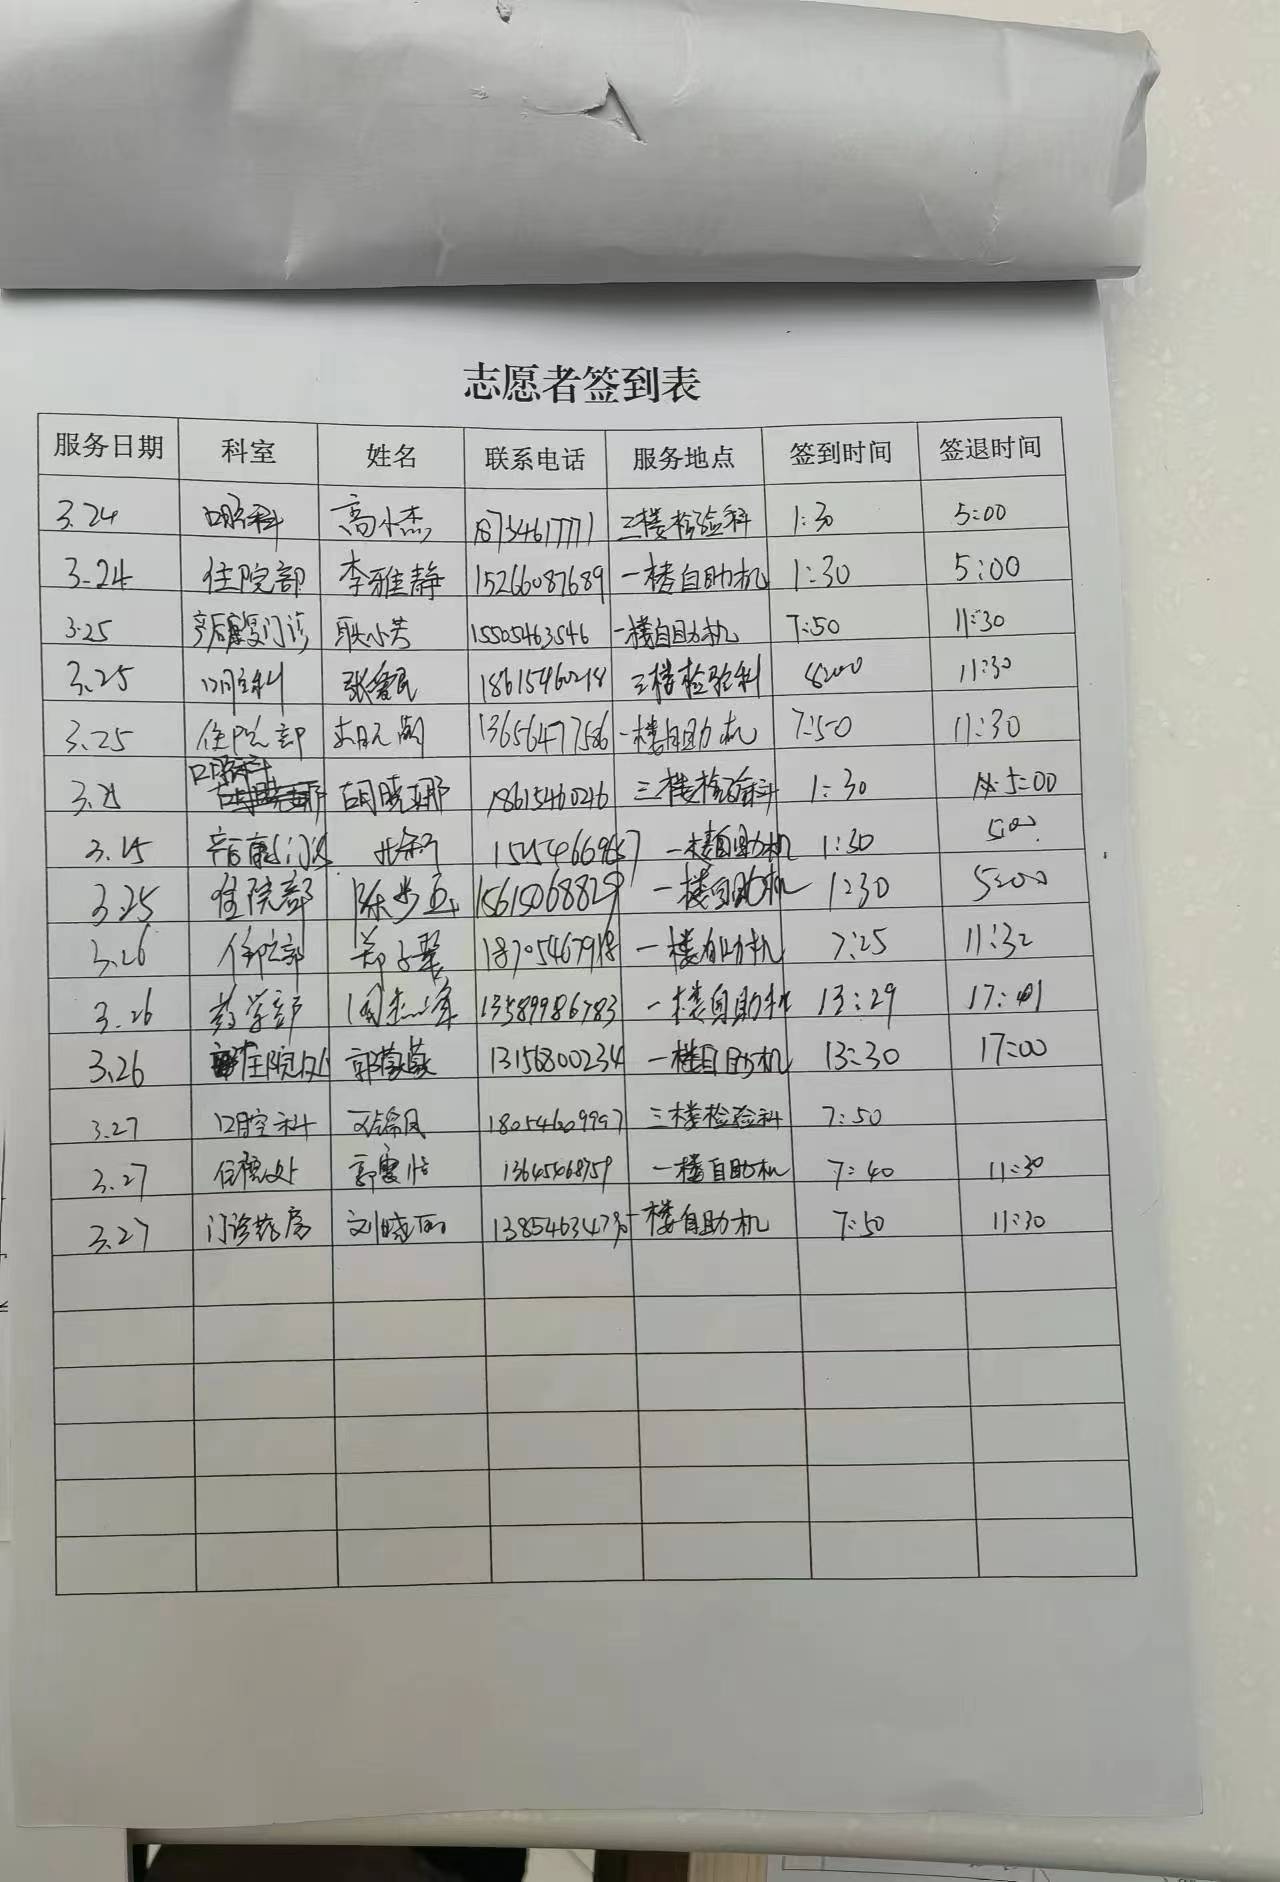 志愿者签到表
服务日期 科室 姓名 联系电话 服务地点 签到时间 签退时间
3.24 口腔科 高小杰 18734617771 三楼检验科 1:30 5:00
3.24 住院部 李雅静 15266087689 一楼自助机 1:30 5:00
3.25 产后康复门诊 耿小芳 15505463546 一楼自助机 7:50 11:30
3.25 口腔科 张爱民 18615460218 三楼检验科 8:00 11:30
3.25 住院部 13656477586 一楼自助机 7:50 11:30
口腔科
3.25 胡晓娜 18615460246 三楼检验科 1:30 5:00
3.25 产后康复门诊 一楼自助机 1:30 5:00
3.25 住院部 陈步玉 15615068829 一楼自助机 1:30 5:00
3.26 住院部 郑子翠 18705467918 一楼自助机 7:25 11:32
3.26 药学部 13589986783 一楼自助机 13:29 17:01
3.26 住院处 郭薇薇 13156800234 一楼自助机 13:30 17:00
3.27 口腔科 18054609997 三楼检验科 7:50
3.27 住院处 13645468759 一楼自助机 7:40 11:30
3.27 门诊药房 刘晓丽 一楼自助机 7:50 11:30